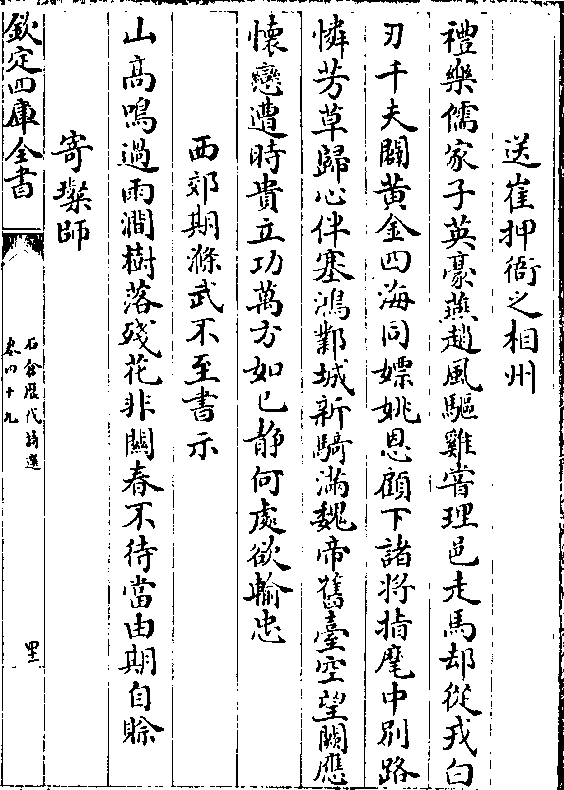 送崔押衙之相州
禮樂儒家子英豪燕趙風驅雞嘗理邑走馬却從戎白
刃千夫闢黃金四海同嫖姚恩顧下諸將指麾中別路
憐芳草歸心伴塞鴻鄴城新騎滿魏帝舊臺空望闕應
懷戀遭時貴立功萬方如已静何處欲輸忠
西郊期滌武不至書示
山高鳴過雨澗樹落殘花非關春不待當由期自賒
寄璨師
欽定四庫全書
石倉歷代詩選
卷四十九